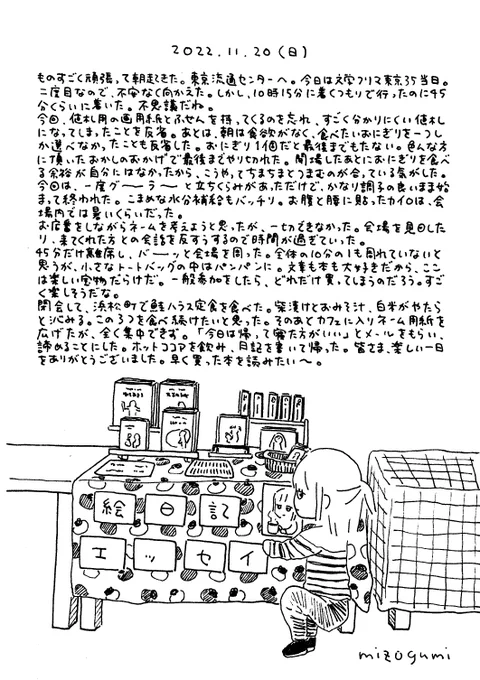 2022.11.20(日)
ものすごく頑張って朝起きた。東京流通センターへ。今日は文学フリマ東京35当日。
二度目なので、不安なく向かえた。しかし、10時15分に着くつもりで行ったのに45
分くらいに着いた。不思議だね。
今回、値札用の画用紙とふせんを持ってくるのを忘れ、すごく分かりにくい値札
になってしまったことを反省。あとは、朝は食欲がなく、食べたいおにぎりを一つし
か選べなかったことも反省した。おにぎり1個だと最後までもたない。色んな方
に頂いたおかしのおかげで最後までやりきれた。開場したあとにおにぎりを食べ
る余裕が自分にはなかったから、こうやってちまちまとつまむのが合っている気がした。
今回は、一度グーーラーーと立ちくらみがあっただけで、かなり調子の良いまま始
まって終われた。こまめな水分補給もバッチリ。お腹と腰に貼ったカイロは、会
場内では暑いくらいだった。
お店番をしながらネームを考えようと思ったが、一切できなかった。会場を見回した
り、来てくれた方との会話を反すうするので時間が過ぎていった。
45分だけ離席し、バーーッと会場を回った。全体の10分の1も周れていないと
思うが、小さなトートバッグの中はパンパンに。文章も本も大好きだから、ここ
は楽しい宝物だらけだ。一般参加をしたら、どれだけ買ってしまうのだろう。すご
く楽しそうだな。
閉会して、浜松町で鮭ハラス定食を食べた。柴漬けとおみそ汁、白米がやたら
と沁みる。この3つを食べ続けたいと思った。そのあとカフェに入りネーム用紙を
広げたが、全く集中できず。「今日は帰って寝た方がいい」とメールをもらい、
諦めることにした。ホットココアを飲み、日記を書いて帰った。皆さま、楽しい一日
をありがとうございました。早く買った本を読みたい〜。
絵日記
エッセイ
mizogumi